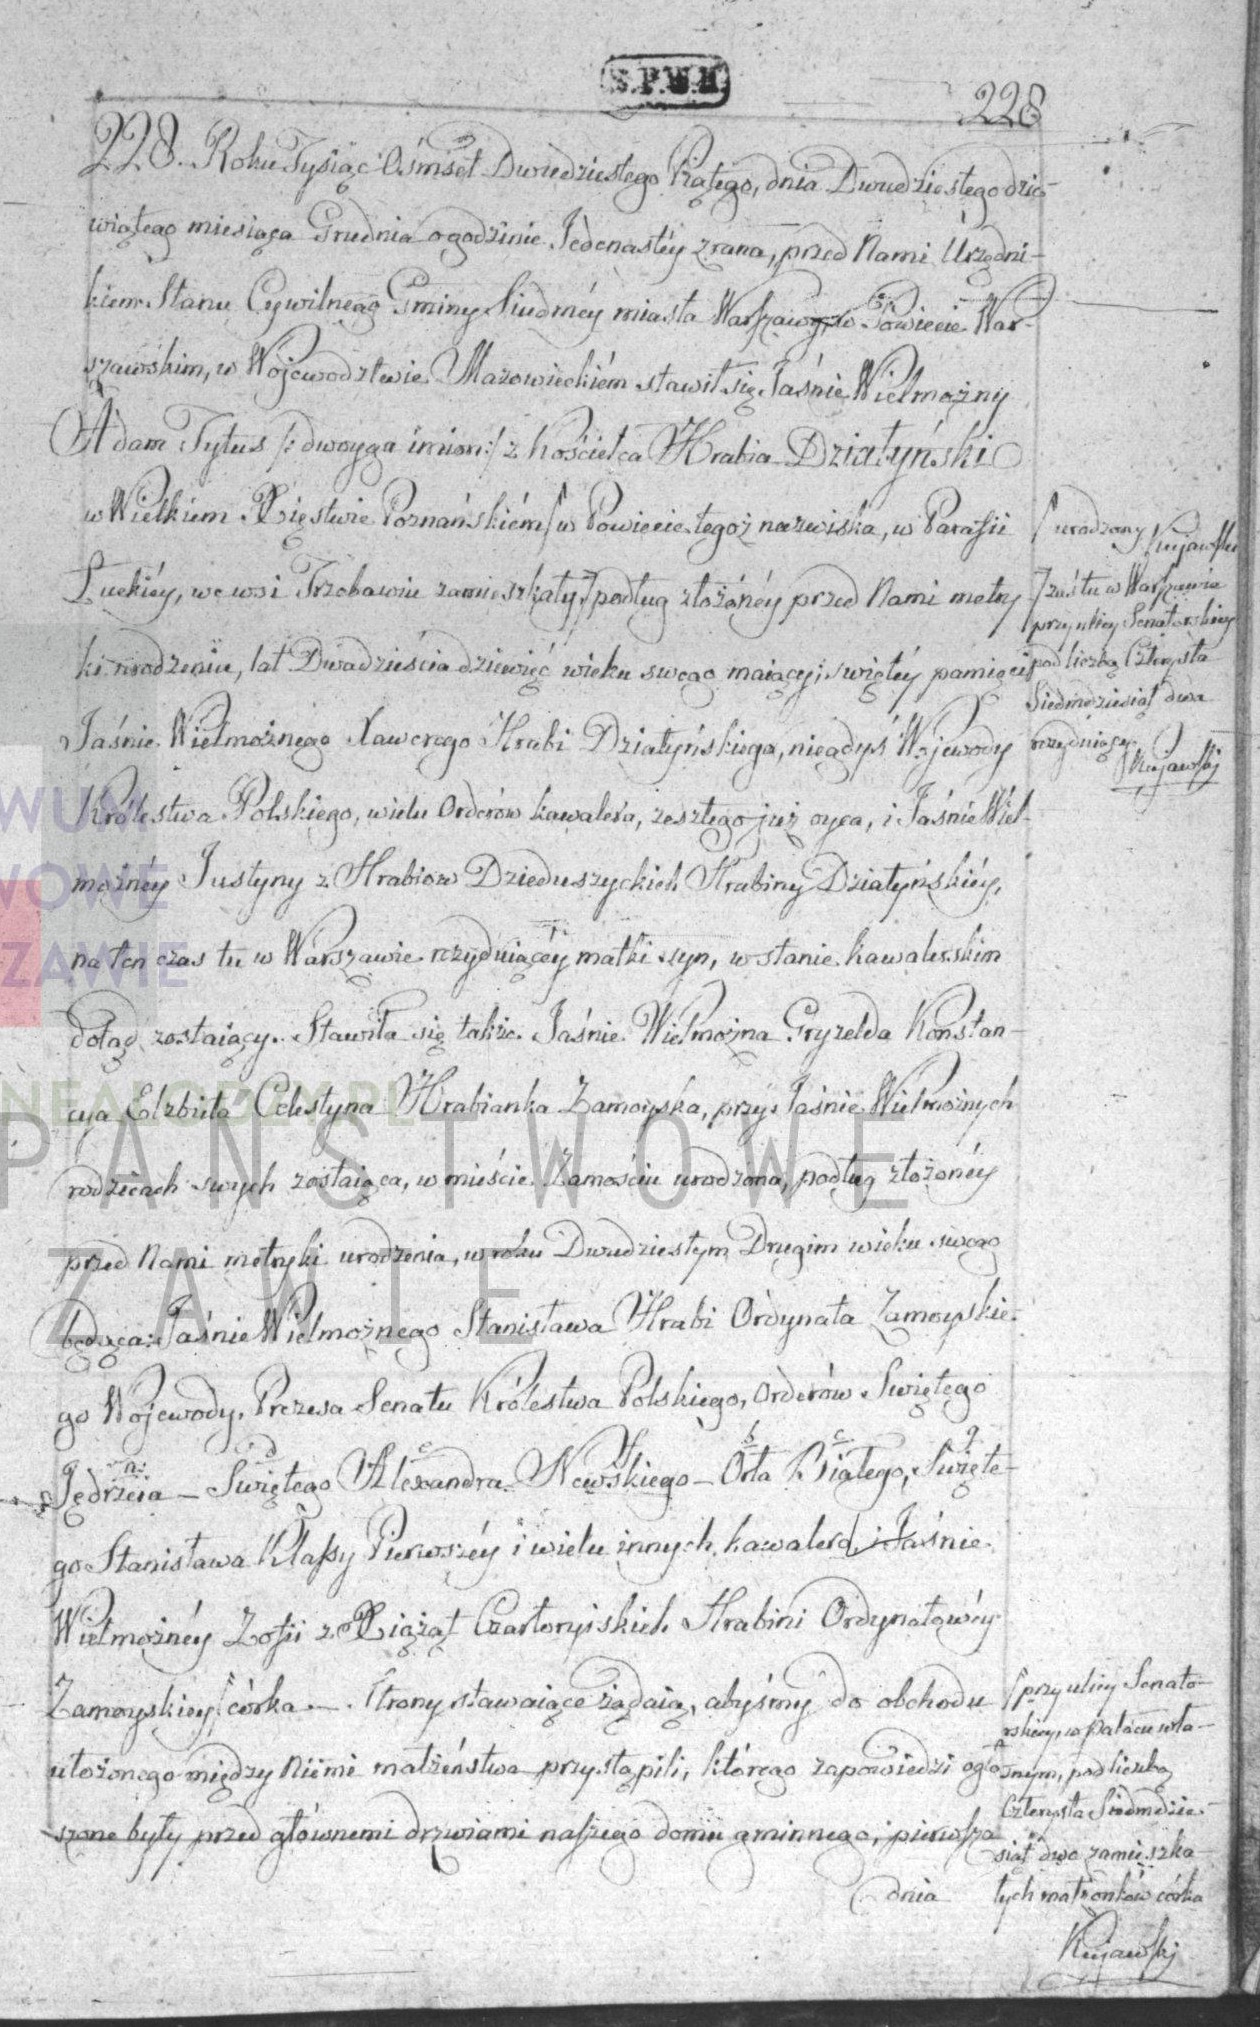 S.P.W.H.
228
228. Roku Tysiąc Ośmset Dwudziestego Piątego, dnia Dwudziestego dzie-
wiątego miesiąca Grudnia o godzinie Jedenastéy zrana, przed Nami Urzędni-
kiem Stanu Cywilnego Gminy Siudméy miasta Warszawy, w Powiecie War-
szawskim, w Wojewodztwie Mazowieckiém stawił się Jaśnie Wielmożny
Adam Tytus /: dwoyga imion :/ z Kościelca Hrabia Działyński
w Wielkiem Xięstwie Poznańskiém / w Powiecie tegoż nazwiska, w Parafii
we wsi Trzebawiu zamieszkały, / podług złożonéy przed Nami metry-
ki urodzeniu, lat Dwadzieścia dziewięć wieku swego maiący; swiętéy pamięci
Jaśnie Wielmożnego Xawerego Hrabi Działyńskiego, niegdyś Wojewody
Królestwa Polskiego, wielu Orderów kawalera, zeszłego już oyca, i Jaśnie Wiel-
możnéy Justyny z Hrabiow Dzieduszyckich Hrabiny Działyńskiéy,
na ten czas tu w Warszawie rezyduiącéy matki syn, w stanie kawalerskim
dotąd zostaiący. Stawiła się także Jaśnie Wielmożna Gryzelda Konstan-
cya Elzbieta Celestyna Hrabianka Zamoyska, przy Jaśnie Wielmożnych
rodzicach swych zostaiąca, w mieście Zamościu urodzona, podług złożonéy
przed Nami metryki urodzenia, w roku Dwudziestym Drugim wieku swego
będąca: Jaśnie Wielmożnego Stanisława Hrabi Ordynata Zamoyskie-
go Wojewody, Prezesa Senatu Królestwa Polskiego, Orderów Swiętego
Jędrzeia – Swiętego Alexandra Newskiego – Orła Białego, Swięte-
go Stanisława Klassy Pierwszéy i wielu innych kawalera, i Jaśnie
Wielmożnéy Zofii z Xiążąt Czartoryiskich Hrabini Ordynatowéy
Zamoyskiey / córka. – Strony stawaiące żądaią, abyśmy do obchodu
ułożonego między Niemi małżeństwa przystąpili, którego zapowiedzi ogło-
szone były przed głównemi drzwiami naszego domu gminnego, i pierwsza
dnia
/ urodzony Kujawski
/ zaś tu w Warszawie
przy ulicy Senatorskiey
pod liczbą Czterysta
Siedmdziesiąt dwa
rezyduiący
Kujawski
/ przy ulicy Senato-
rskiey, w pałacu wła-
snym, pod liczbą
Czterysta Siedmdzie-
siąt dwa zamieszka-
łych małżonków córka
Kujawski
WUM
WOWE
ZAWIE
NEALODZY.PL
PAŃSTWOWE
ZAWIE